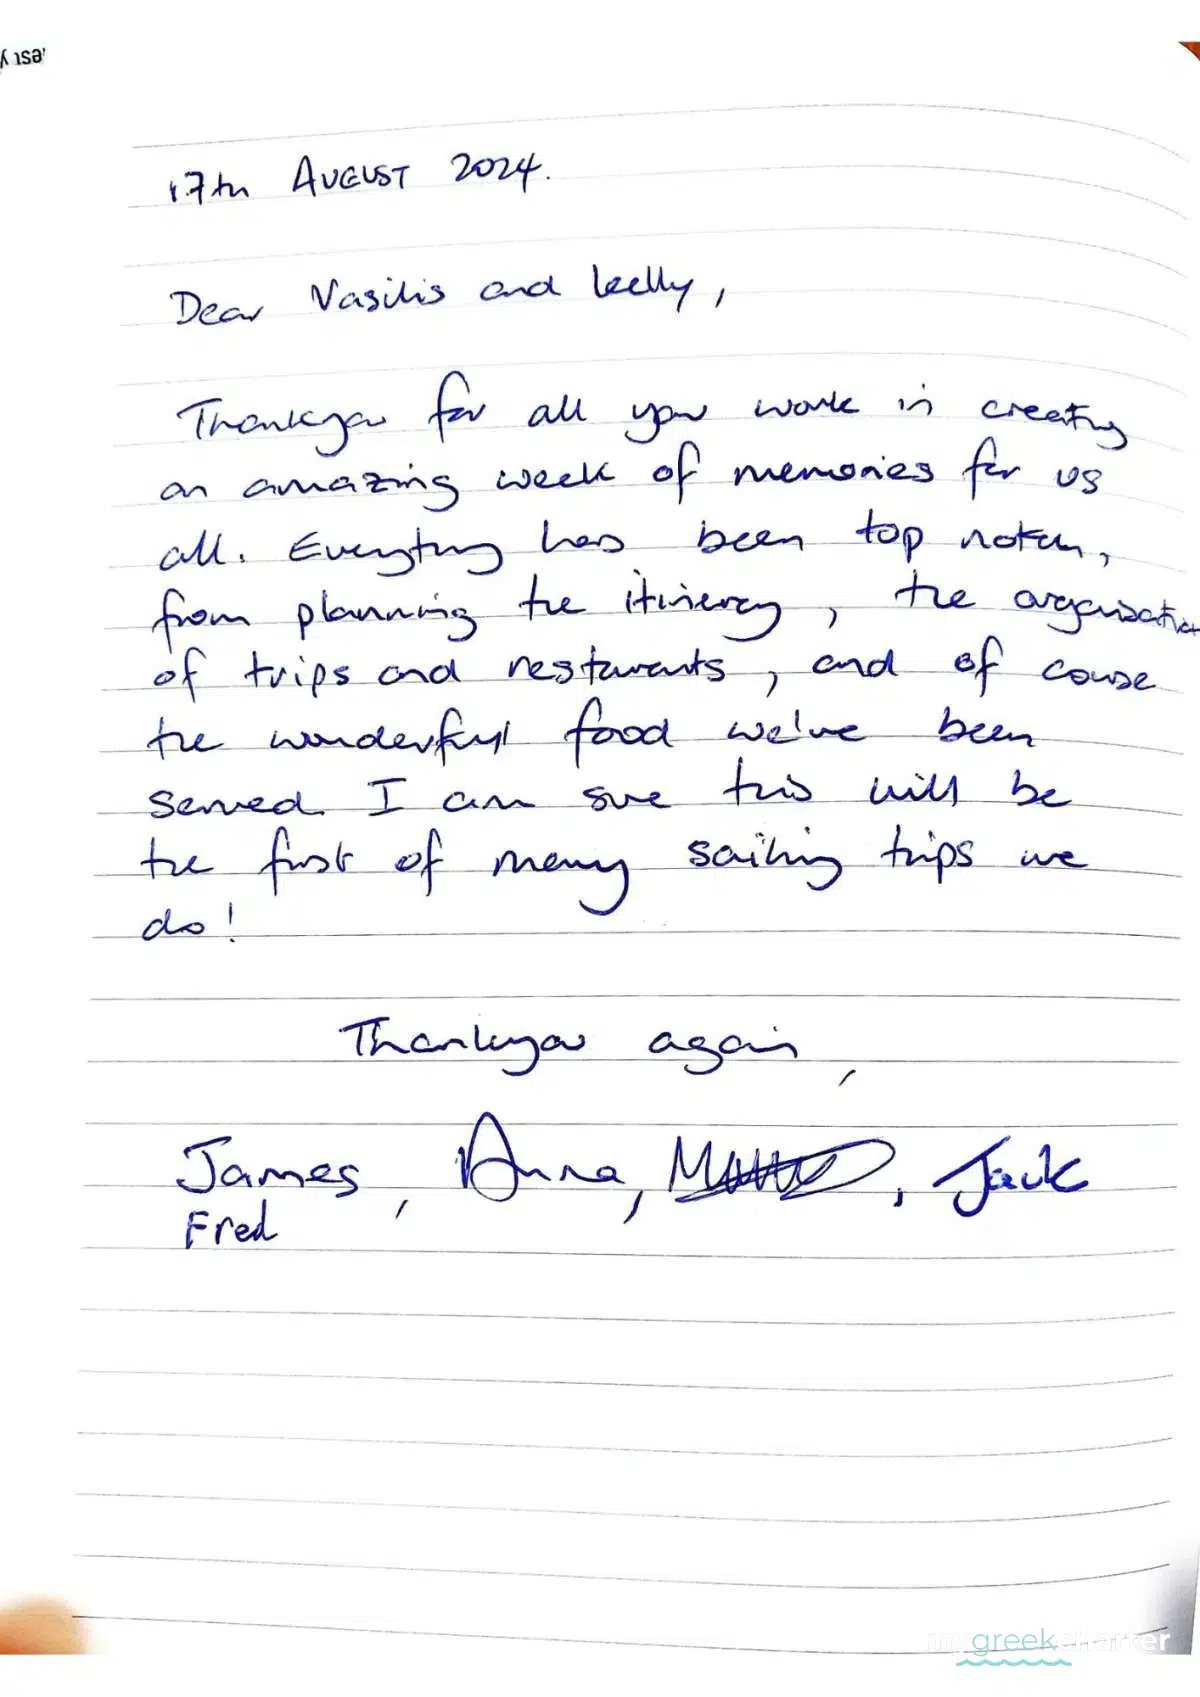 17th AUGUST 2024.
Dear Vasilis and Kelly,
Thankyou for all your work in creating
an amazing week of memories for us
all. Everything has been top notch,
from planning the itinerary, the organisation
of trips and restaurants, and of course
the wonderful food we've been
served. I am sure this will be
the first of many sailing trips we
do!
Thankyou again,
James, Anna, , Jack
Fred
my greek charter